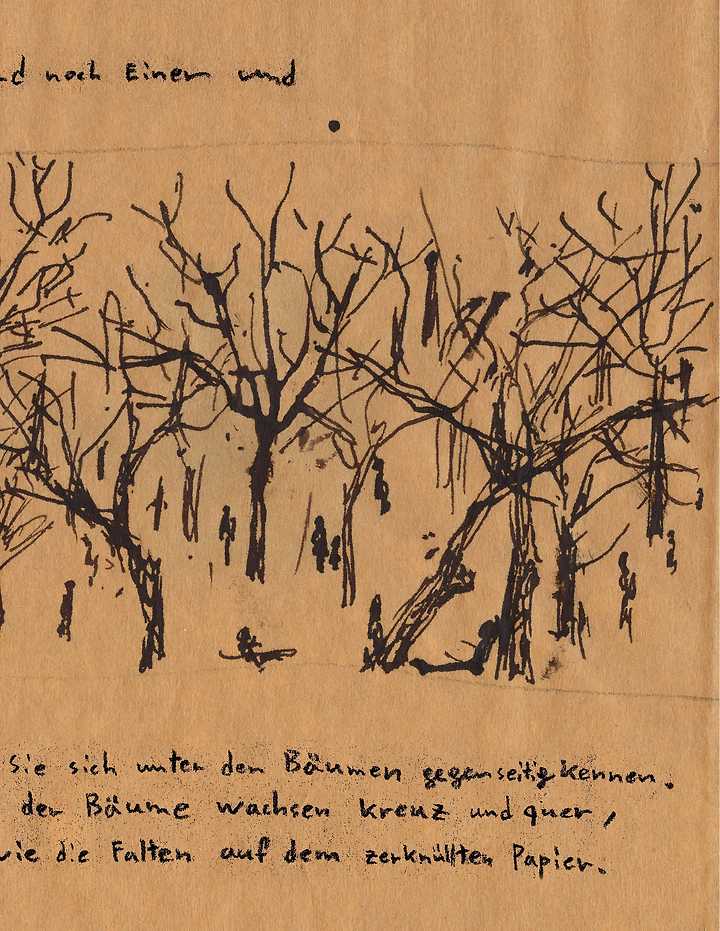 nd noch Einer und
sie sich unter den Bäumen gegenseitig kennen.
der Bäume wachsen kreuz und quer,
wie die Falten auf dem zerknüllten Papier.